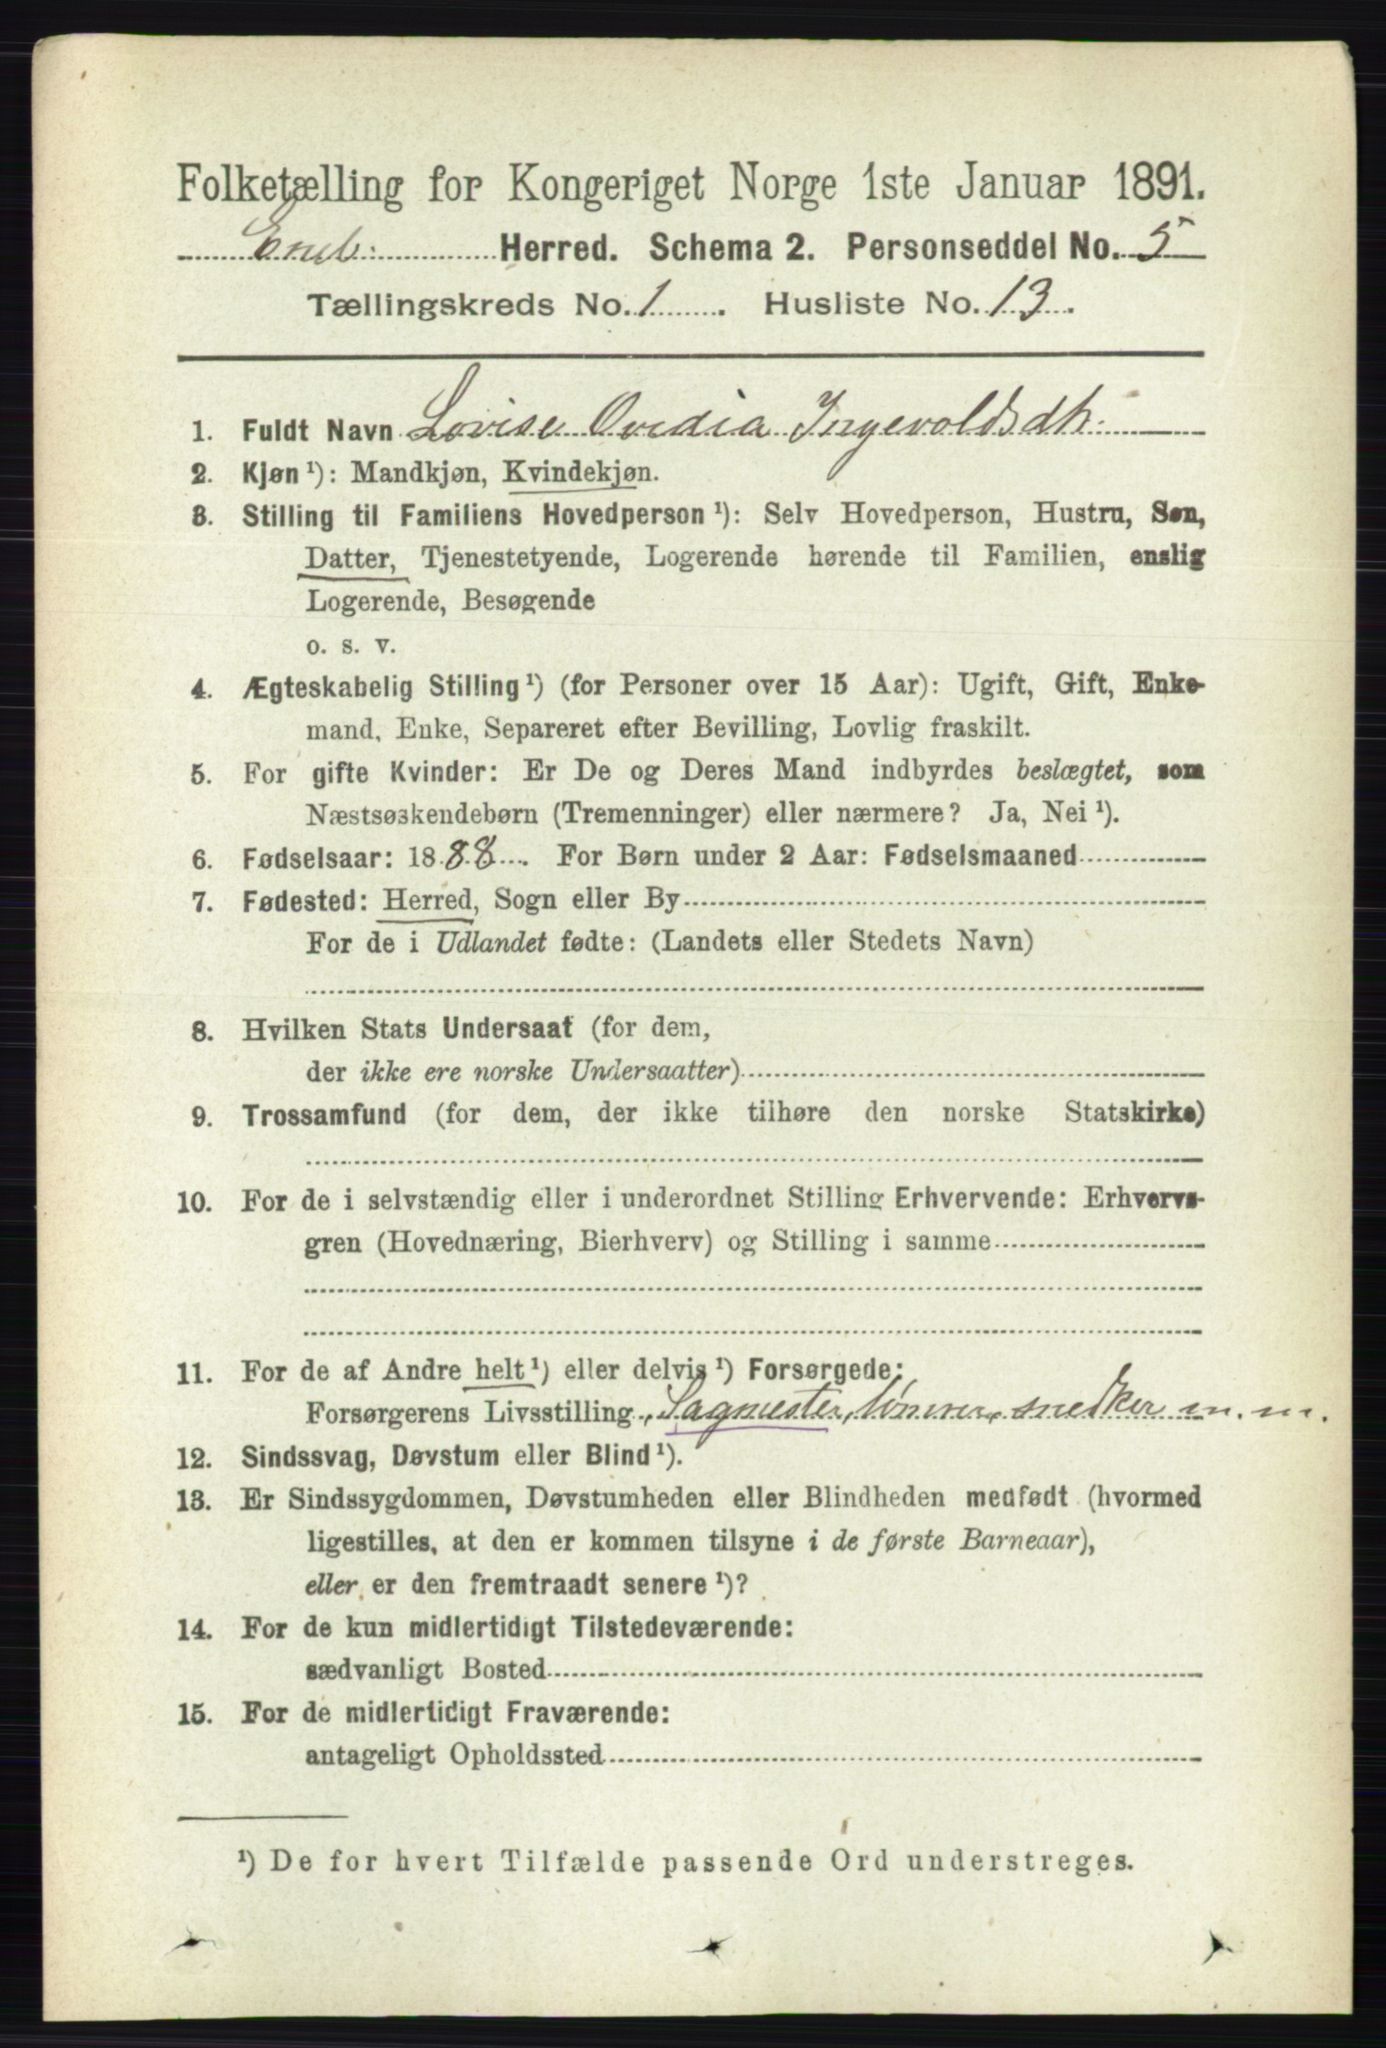 Folketælling for Kongeriget Norge 1ste Januar 1891.
Eneb. Herred. Schema 2. Personseddel No. 5
Tællingskreds No. 1. Husliste No. 13.
1. Fuldt Navn Lovise Ovidia Ingevoldsdtr.
2. Kjøn ¹): Mandkjøn, Kvindekjøn.
3. Stilling til Familiens Hovedperson ¹): Selv Hovedperson, Hustru, Søn,
Datter, Tjenestetyende, Logerende hørende til Familien, enslig
Logerende, Besøgende
o. s. v.
4. Ægteskabelig Stilling ¹) (for Personer over 15 Aar): Ugift, Gift, Enke-
mand, Enke, Separeret efter Bevilling, Lovlig fraskilt.
5. For gifte Kvinder: Er De og Deres Mand indbyrdes beslægtet, som
Næstsøskendebørn (Tremenninger) eller nærmere? Ja, Nei ¹).
6. Fødselsaar: 1888. For Børn under 2 Aar: Fødselsmaaned
7. Fødested: Herred, Sogn eller By
For de i Udlandet fødte: (Landets eller Stedets Navn)
8. Hvilken Stats Undersaat (for dem,
der ikke ere norske Undersaatter)
9. Trossamfund (for dem, der ikke tilhøre den norske Statskirke)
10. For de i selvstændig eller i underordnet Stilling Erhvervende: Erhvervs-
gren (Hovednæring, Bierhverv) og Stilling i samme
11. For de af Andre helt ¹) eller delvis ¹) Forsørgede:
Forsørgerens Livsstilling, Sagmester, tømrer, snedker m. m.
12. Sindssvag, Døvstum eller Blind ¹).
13. Er Sindssygdommen, Døvstumheden eller Blindheden medfødt (hvormed
ligestilles, at den er kommen tilsyne i de første Barneaar),
eller er den fremtraadt senere ¹)?
14. For de kun midlertidigt Tilstedeværende:
sædvanligt Bosted
15. For de midlertidigt Fraværende:
antageligt Opholdssted
¹) De for hvert Tilfælde passende Ord understreges.